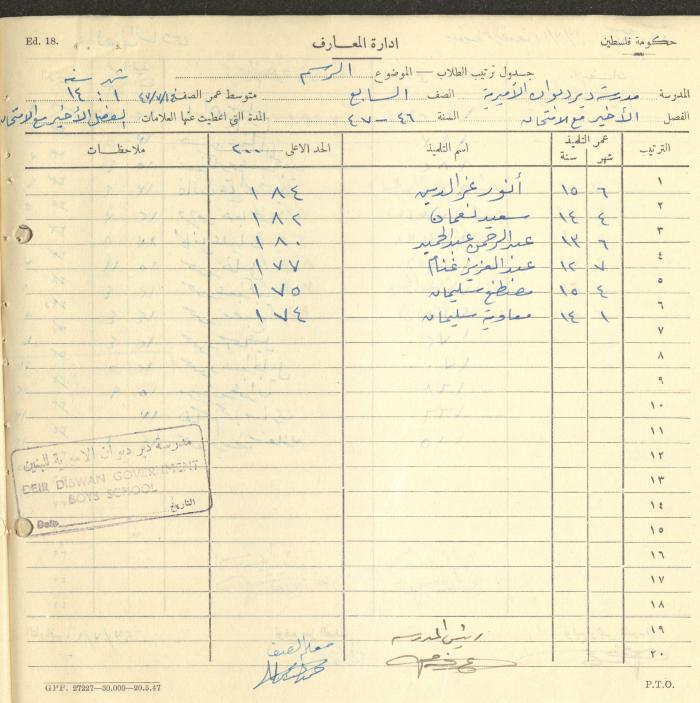 Ed. 18.
ادارة المعارف
حكومة فلسطين
جدول ترتيب الطلاب — الموضوع الرسم
شهر سنة
المدرسة مدرسة ديرديوان الأميرية الصف السابع متوسط عمر الصف ١ : ١٤
الفصل الأخير مع الامتحان السنة ٤٦ – ٤٧ المدة التي اعطيت عنها العلامات الفصل الأخير مع الامتحان
الترتيب عمر التلميذ اسم التلميذ الحد الاعلى ٢٠٠ ملاحظات
شهر سنة
١ ٦ ١٥ أنور عز الدين ١٨٤
٢ ٤ ١٤ سعيد نعمان ١٨٢
٣ ٦ ١٣ عبد الرحمن عبد الحميد ١٨٠
٤ ٧ ١٢ عبد العزيز غنام ١٧٧
٥ ٤ ١٥ مصطفى سليمان ١٧٥
٦ ١ ١٤ معاوية سليمان ١٧٤
٧
٨
٩
١٠
١١
١٢
١٣
١٤
١٥
١٦
١٧
١٨
١٩
٢٠
مدرسة دير ديوان الاميرية للبنين
DEIR DISWAN GOVERNMENT
BOYS SCHOOL
Date التاريخ
رئيس المدرسة
معلم الصف
GPP. 27227—30.000—20.5.47
P.T.O.